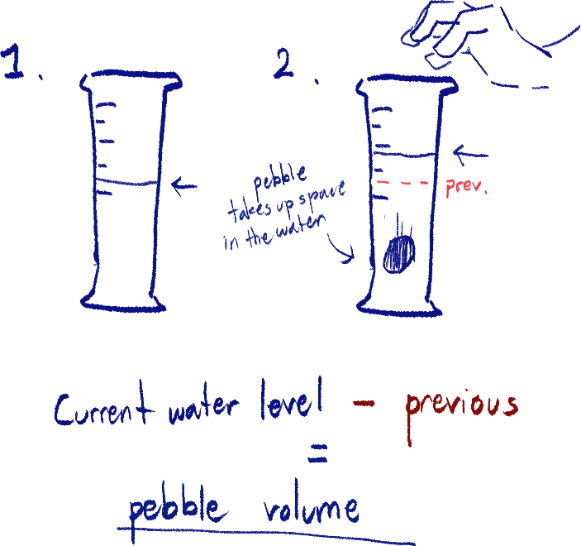 1. 2.
pebble
takes up space
in the water
prev.
Current water level - previous
=
pebble volume